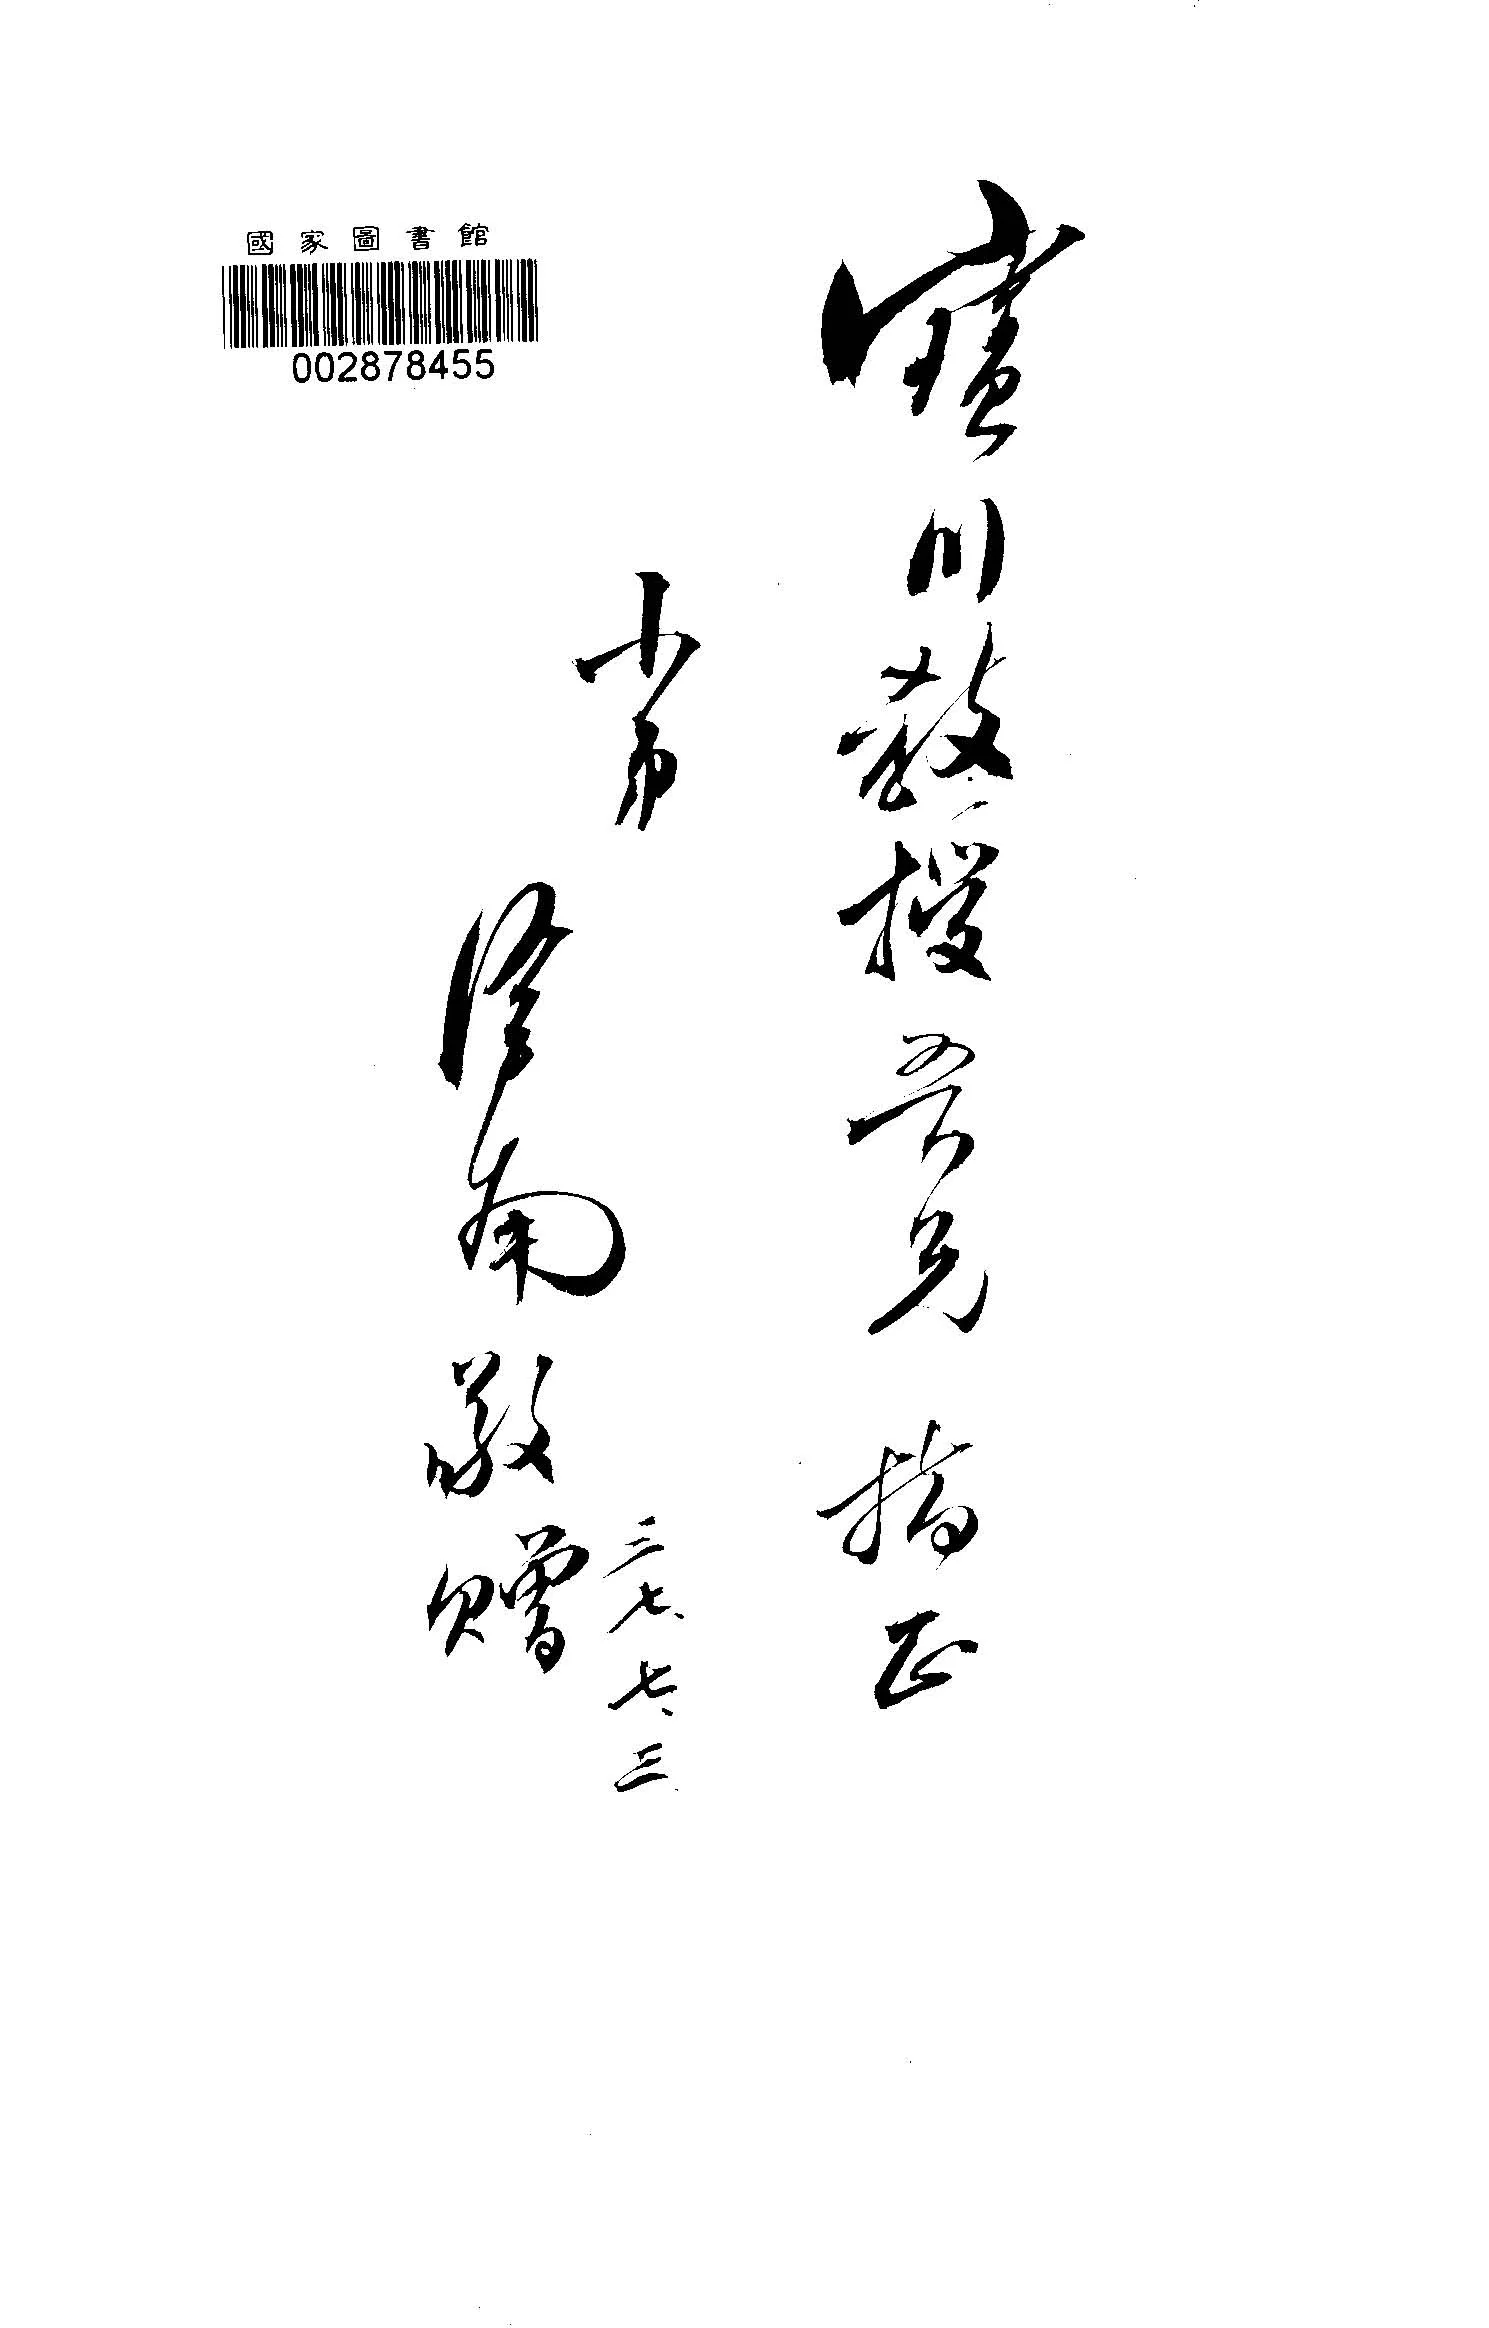 國家圖書館
002878455
寶川教授吾兄 指正
小弟
南敬贈
三七、七、三